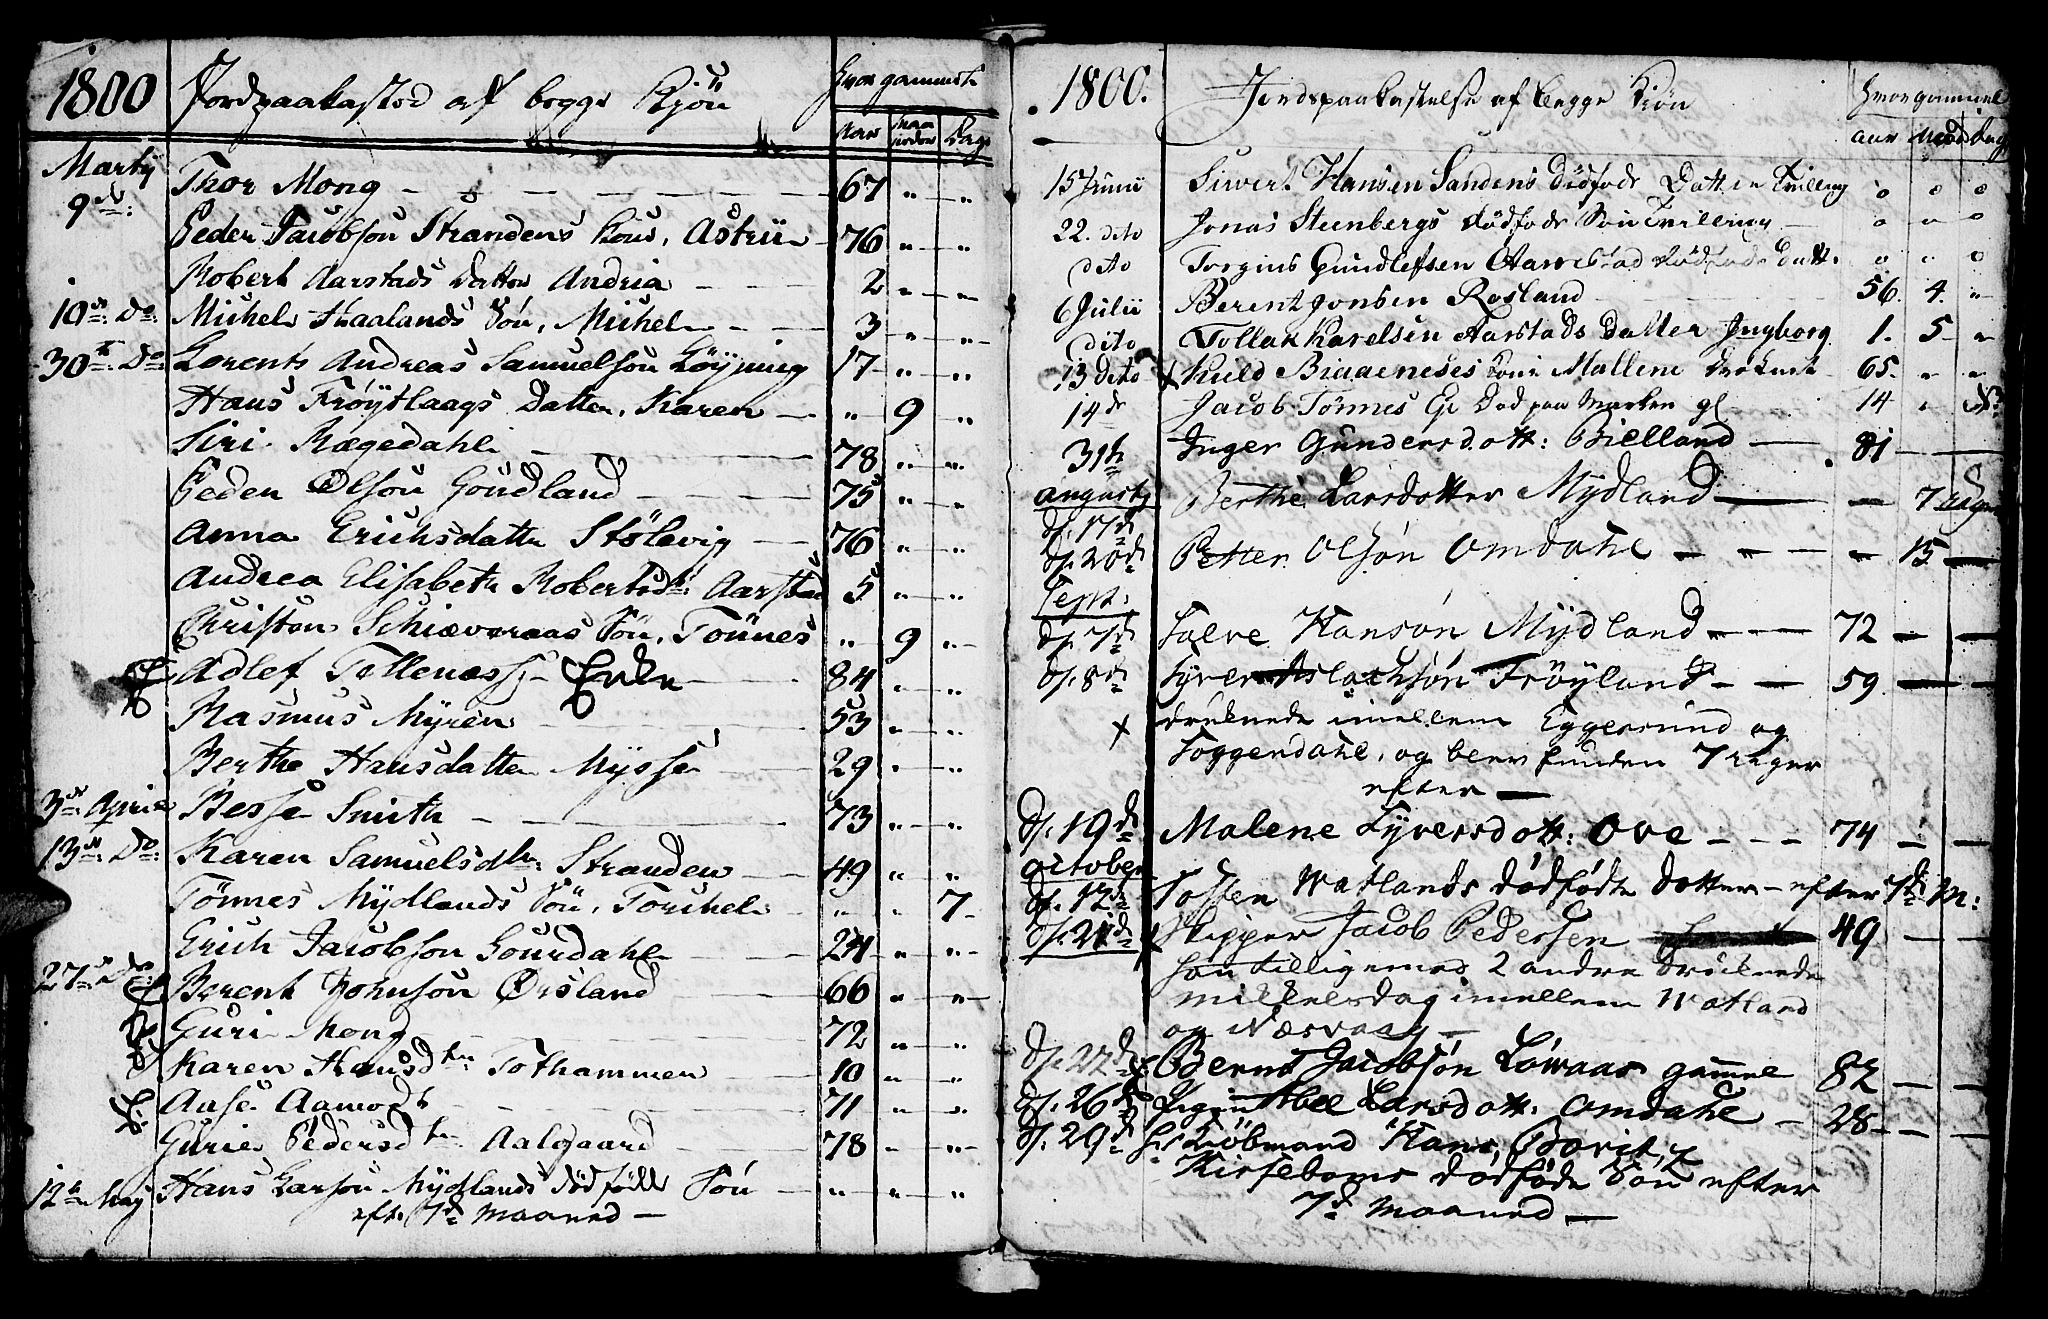 1800 Jordpaakasted af begge Kjön Hvor gammel
Aar Maaneder Dage
Martij 9de: Thor Mong 67 " "
Peder Jacobson Strandens Kone, Astrii 76 " "
Robert Aarstads Datter Andria 2 " "
10de Do: Michel Haalands Sön, Michel 3 " "
30te Do: Lorents Andreas Samuelson Löyning 17 " "
Hans Fröytlaags Datter, Karen " 9 "
Siri Rægedahl 78 " "
Peder Olson Goudland 75 " "
Anna Erichsdatter Stölevig 76 " "
Andrea Elisabeth Robertsdr: Aarstad 5 " "
Christen Schieveraas Sön, Tönnes " 9 "
Adlef Tollenæs 84 " "
Rasmus Myren 53 " "
Berthe Hansdatter Mysse 29 " "
3de April Besse Smith 73 " "
13de Do: Karen Samuelsdtr: Stranden 49 " "
Tönnes Mydlands Sön, Torchel " " 7
Erich Jacobson Gourdahl 24 " "
27de Do Berent Johnson Örsland 66 " "
Guri Mong 72 " "
Karen Hansdtr: Tothammer 10 " "
Aase Aamodt 71 " "
Gurie Pedersdtr Aalgaard 78 " "
12te Maj Hans Larson Mydlands dödfödt Sön " " "
eft. 7de Maaned
1800. Jordspaakastelse af begge Kiön Hvor gammel
aar Dage
15 Junii Siwert Hansen Sandens dödföde Datter Tvilling 0 0 0
22. dito Jonas Steenbergs dödföde Sön Tvilling 0 0 0
dito Torgius Gundlefsen Aarrestad dödföde Datt. 0 " 0
6 Julii Berent Jonsen Rosland 56. 4. "
dito Tollak Karelsen Aarstads Datter Ingborg 1. 5 "
13 dito x Kield Kone Mallene druknet 65. " "
14de Jacob Tönnes Död paa Marken 14 "
31te Inger Gundersdott: Bielland 81
Augusty
d. 17de Berthe Larsdotter Mydland 7 uger
d. 20de Petter Olsön Omdahl 15
Sept:
d. 7de Salve Hansön Mydland 72
d. 8de Syver Aslachsön Fröyland 59
x druknede imellem Eggersund og
Soggendahl, og blev funden 7 uger
efter
d. 19de Malene Syversdott: Ove 74
October
d. 12te Tosten Watlands dödfödte dotter efter 7de M:
d. 21de x Skipper Jacob Pedersen 49
som tilligemed 2 andre druknede
mikkelsdag imellem Watland
og Næsvaag
d. 22de x Bernt Jacobsön Löwaas gammel 82
d. 26de Pigen Abel Larsdott: Omdahl 28
d. 29de Hr Kiöbmand Hans
Kirseboms dödföde Sön efter
7de Maaned